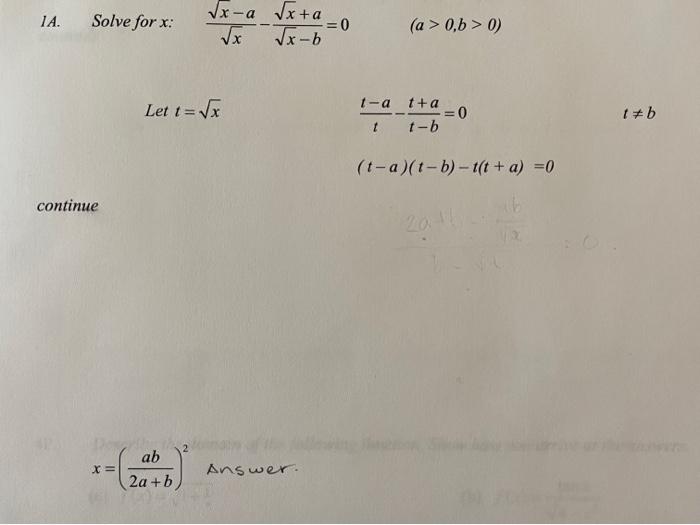 1A. Solve for x: (√x − a)/√x − (√x + a)/(√x − b) = 0 (a > 0, b > 0)
Let t = √x (t − a)/t − (t + a)/(t − b) = 0 t ≠ b
(t − a)(t − b) − t(t + a) = 0
continue
x = (ab/(2a + b))² Answer.